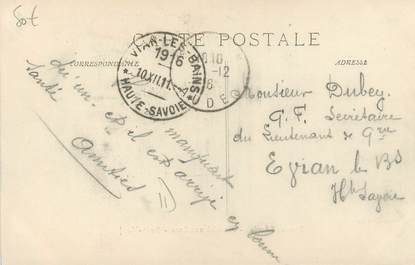 CARTE POSTALE
CORRESPONDANCE
ADRESSE
EVIAN-LES-BAINS
1916
HAUTE-SAVOIE
Monsieur Dubey
G. F. Secrétaire
du Lieutenant de Gie
Evian les Bs
Hte Savoie
manquait
qu'un et il est arrivé en bonne
santé
Amitiés